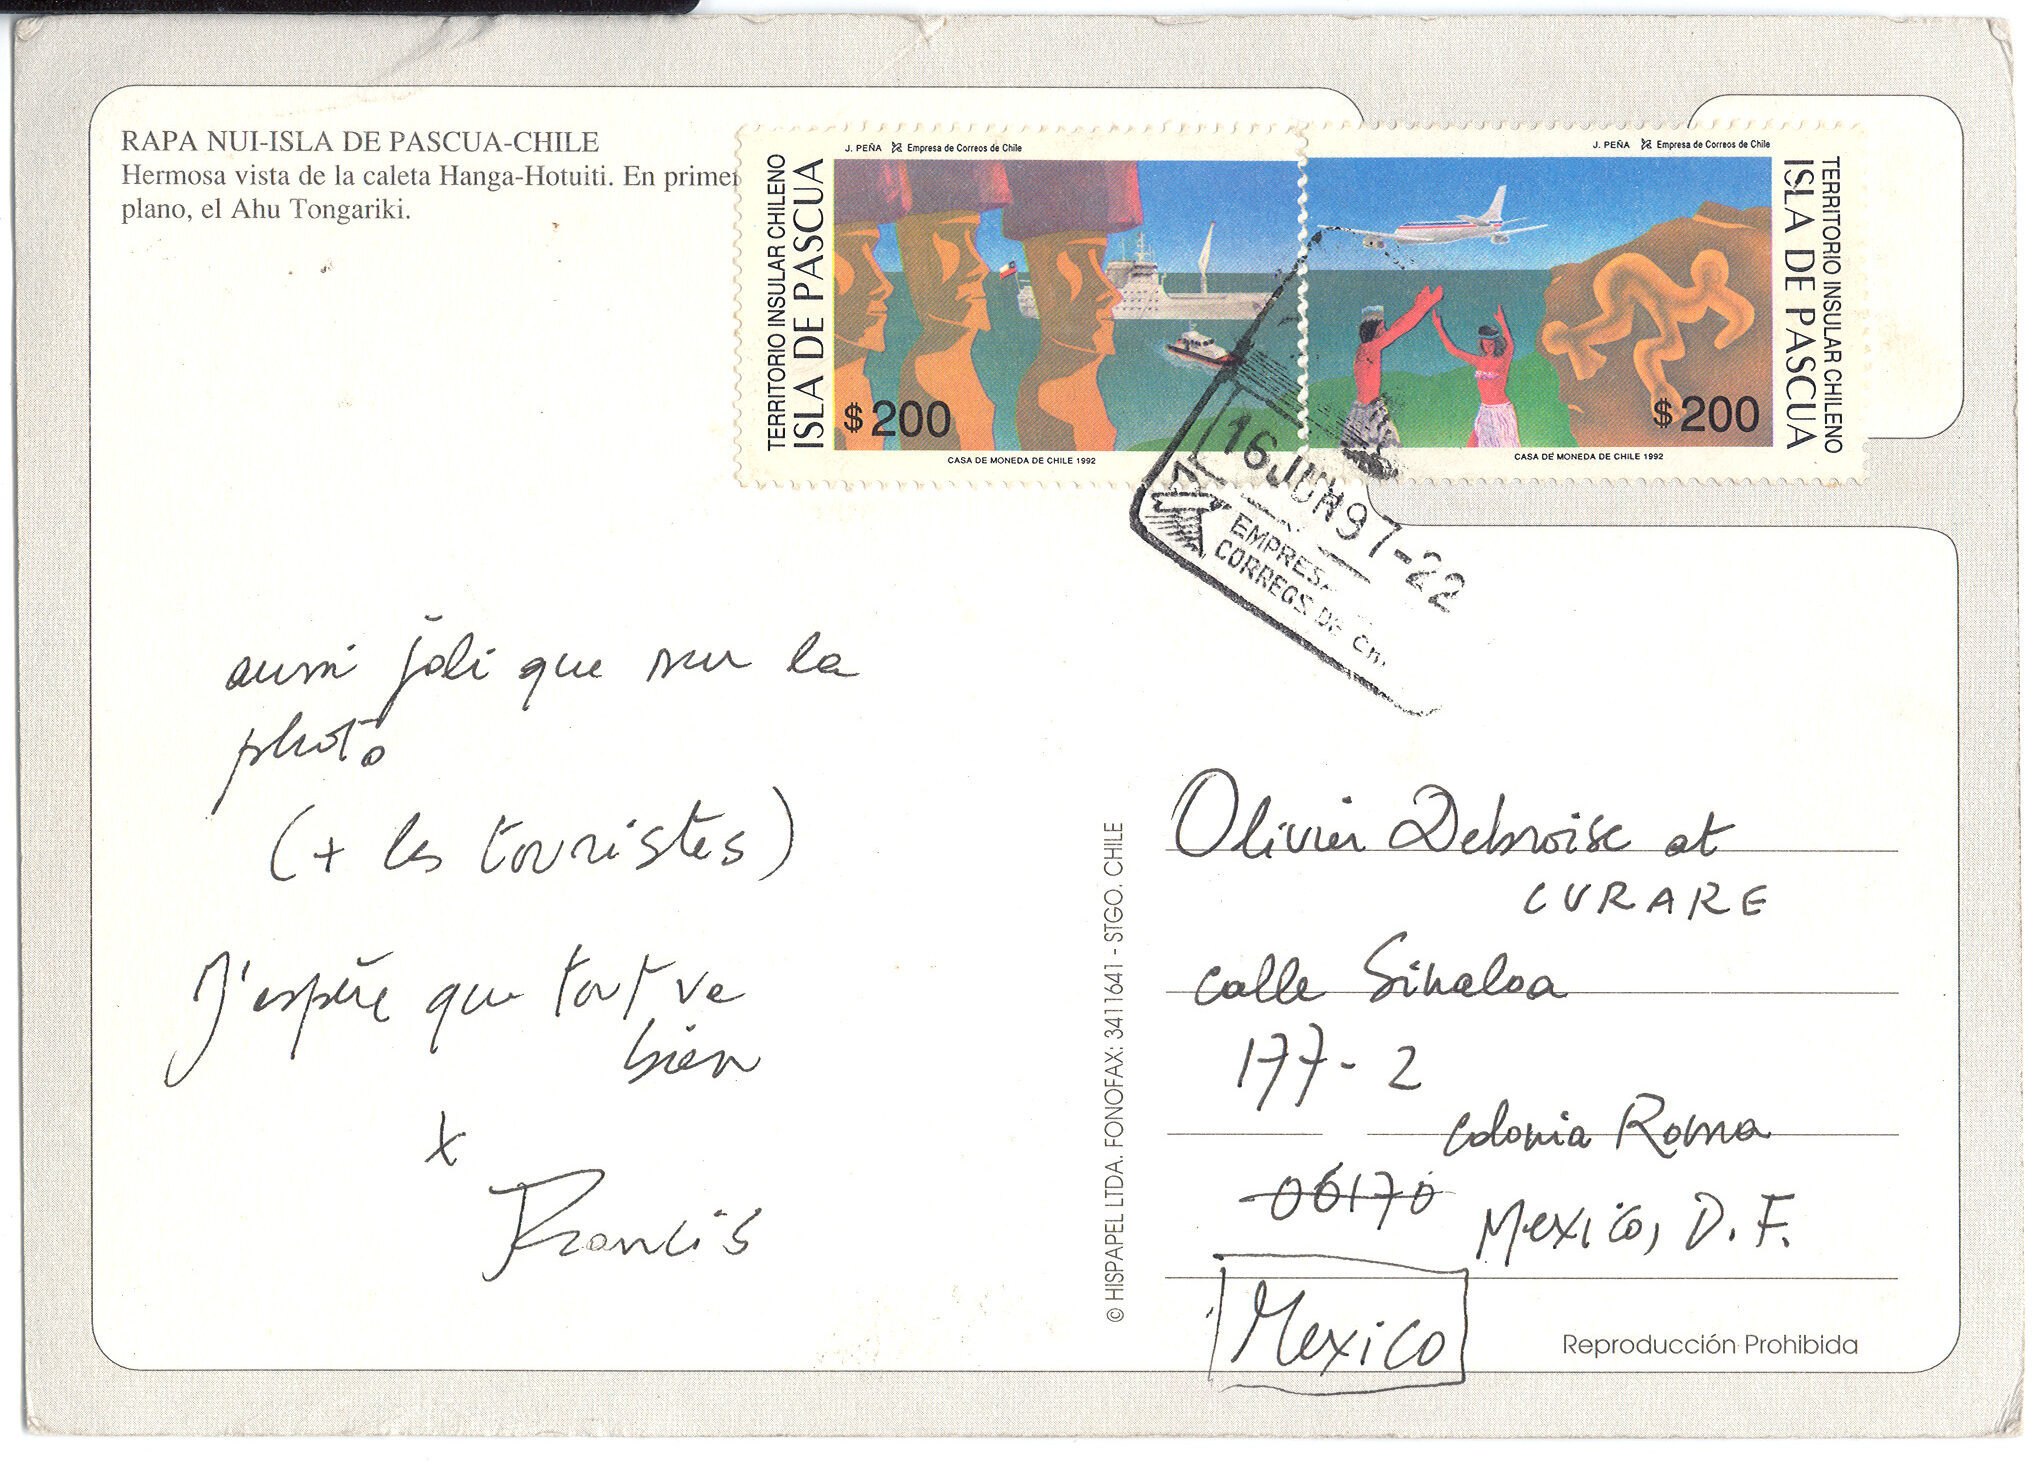 RAPA NUI-ISLA DE PASCUA-CHILE
Hermosa vista de la caleta Hanga-Hotuiti. En primer
plano, el Ahu Tongariki.
J. PEÑA Empresa de Correos de Chile
TERRITORIO INSULAR CHILENO
ISLA DE PASCUA
$200
CASA DE MONEDA DE CHILE 1992
J. PEÑA Empresa de Correos de Chile
TERRITORIO INSULAR CHILENO
ISLA DE PASCUA
$200
CASA DE MONEDA DE CHILE 1992
16 JUN 97-22
EMPRESA
CORREOS DE CHI
aussi joli que sur la
photo
(+ les touristes)
J'espère que tout va
bien
x
Francis
© HISPAPEL LTDA. FONOFAX: 3411641 - STGO. CHILE
Olivier Debroise at
CURARE
calle Sinaloa
177-2
colonia Roma
06170
Mexico, D.F.
Mexico
Reproducción Prohibida